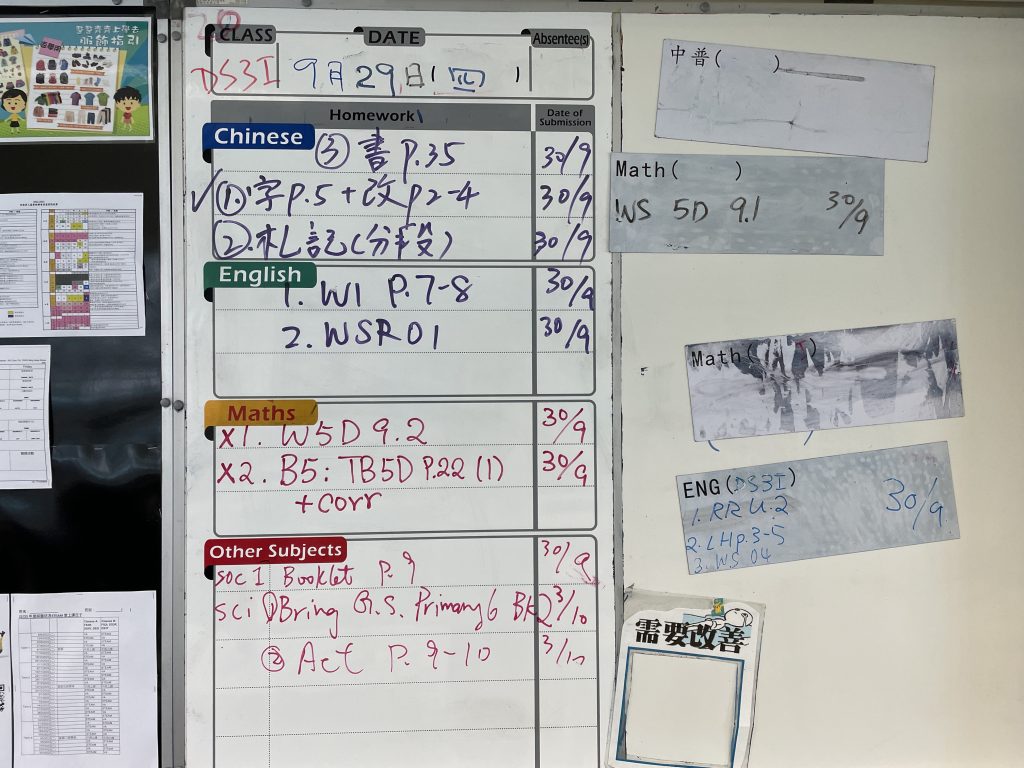 整整齊齊上學去
服飾指引
CLASS DATE Absentee(s)
DS3I 9月29日(四)
Homework Date of Submission
Chinese
③ 書 p.35 30/9
✓①.字p.5+改p2-4 30/9
②.札記(分段) 30/9
English
1. W1 P.7-8 30/9
2. WSR01 30/9
Maths
X1. W5D 9.2 30/9
X2. B5: TB5D P.22 (1) 30/9
+corr
Other Subjects 30/9
soc I Booklet P. 9
sci ①Bring G.S. Primary 6 BK2 3/10
② Act P. 9-10 3/10
中普( )
Math( )
WS 5D 9.1 30/9
Math( )
ENG(DS3I)
1. RR U.2 30/9
2. LHp.3-5
3. WS 04
需要改善